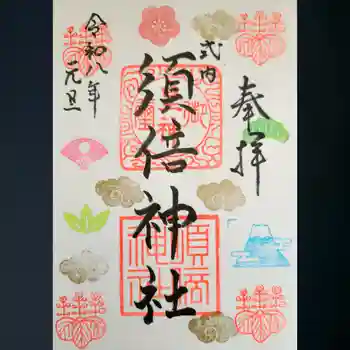 奉拝
式内
須倍神社
令和八年
元旦